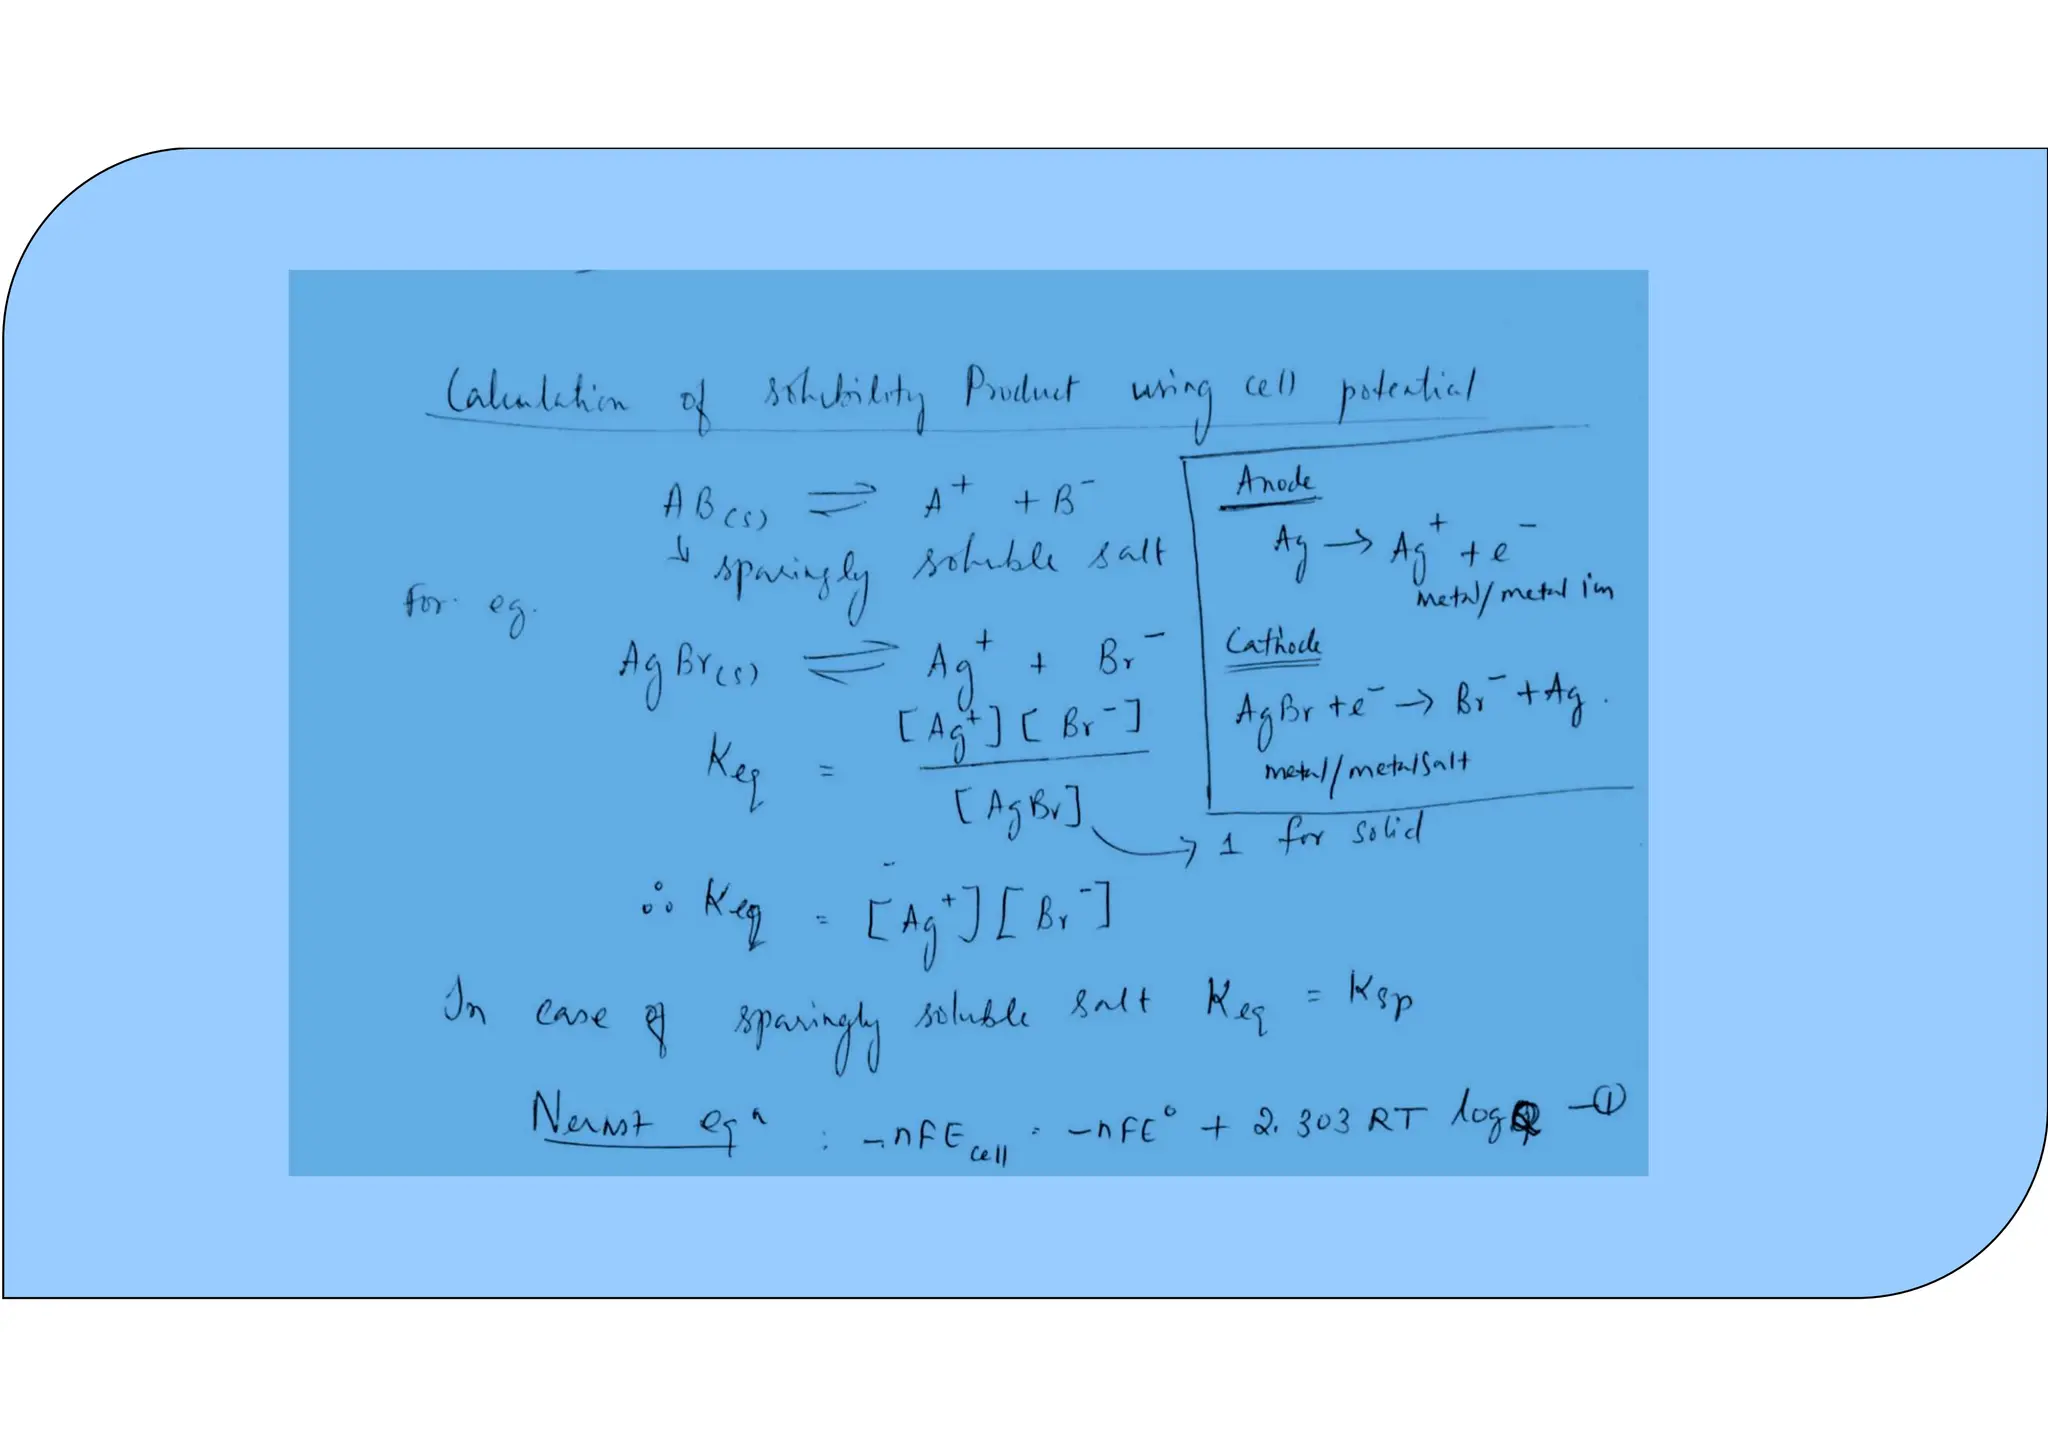 Calculation of solubility Product using cell potential
AB(s) ⇌ A⁺ + B⁻
↓ sparingly soluble salt
For eg.
AgBr(s) ⇌ Ag⁺ + Br⁻
Keq = [Ag⁺][Br⁻] / [AgBr] → 1 for solid
Anode
Ag → Ag⁺ + e⁻
metal/metal ion
Cathode
AgBr + e⁻ → Br⁻ + Ag.
metal/metalsalt
∴ Keq = [Ag⁺][Br⁻]
In case of sparingly soluble salt Keq = Ksp
Nernst eqⁿ : -nFEcell = -nFE° + 2.303 RT log Q -①